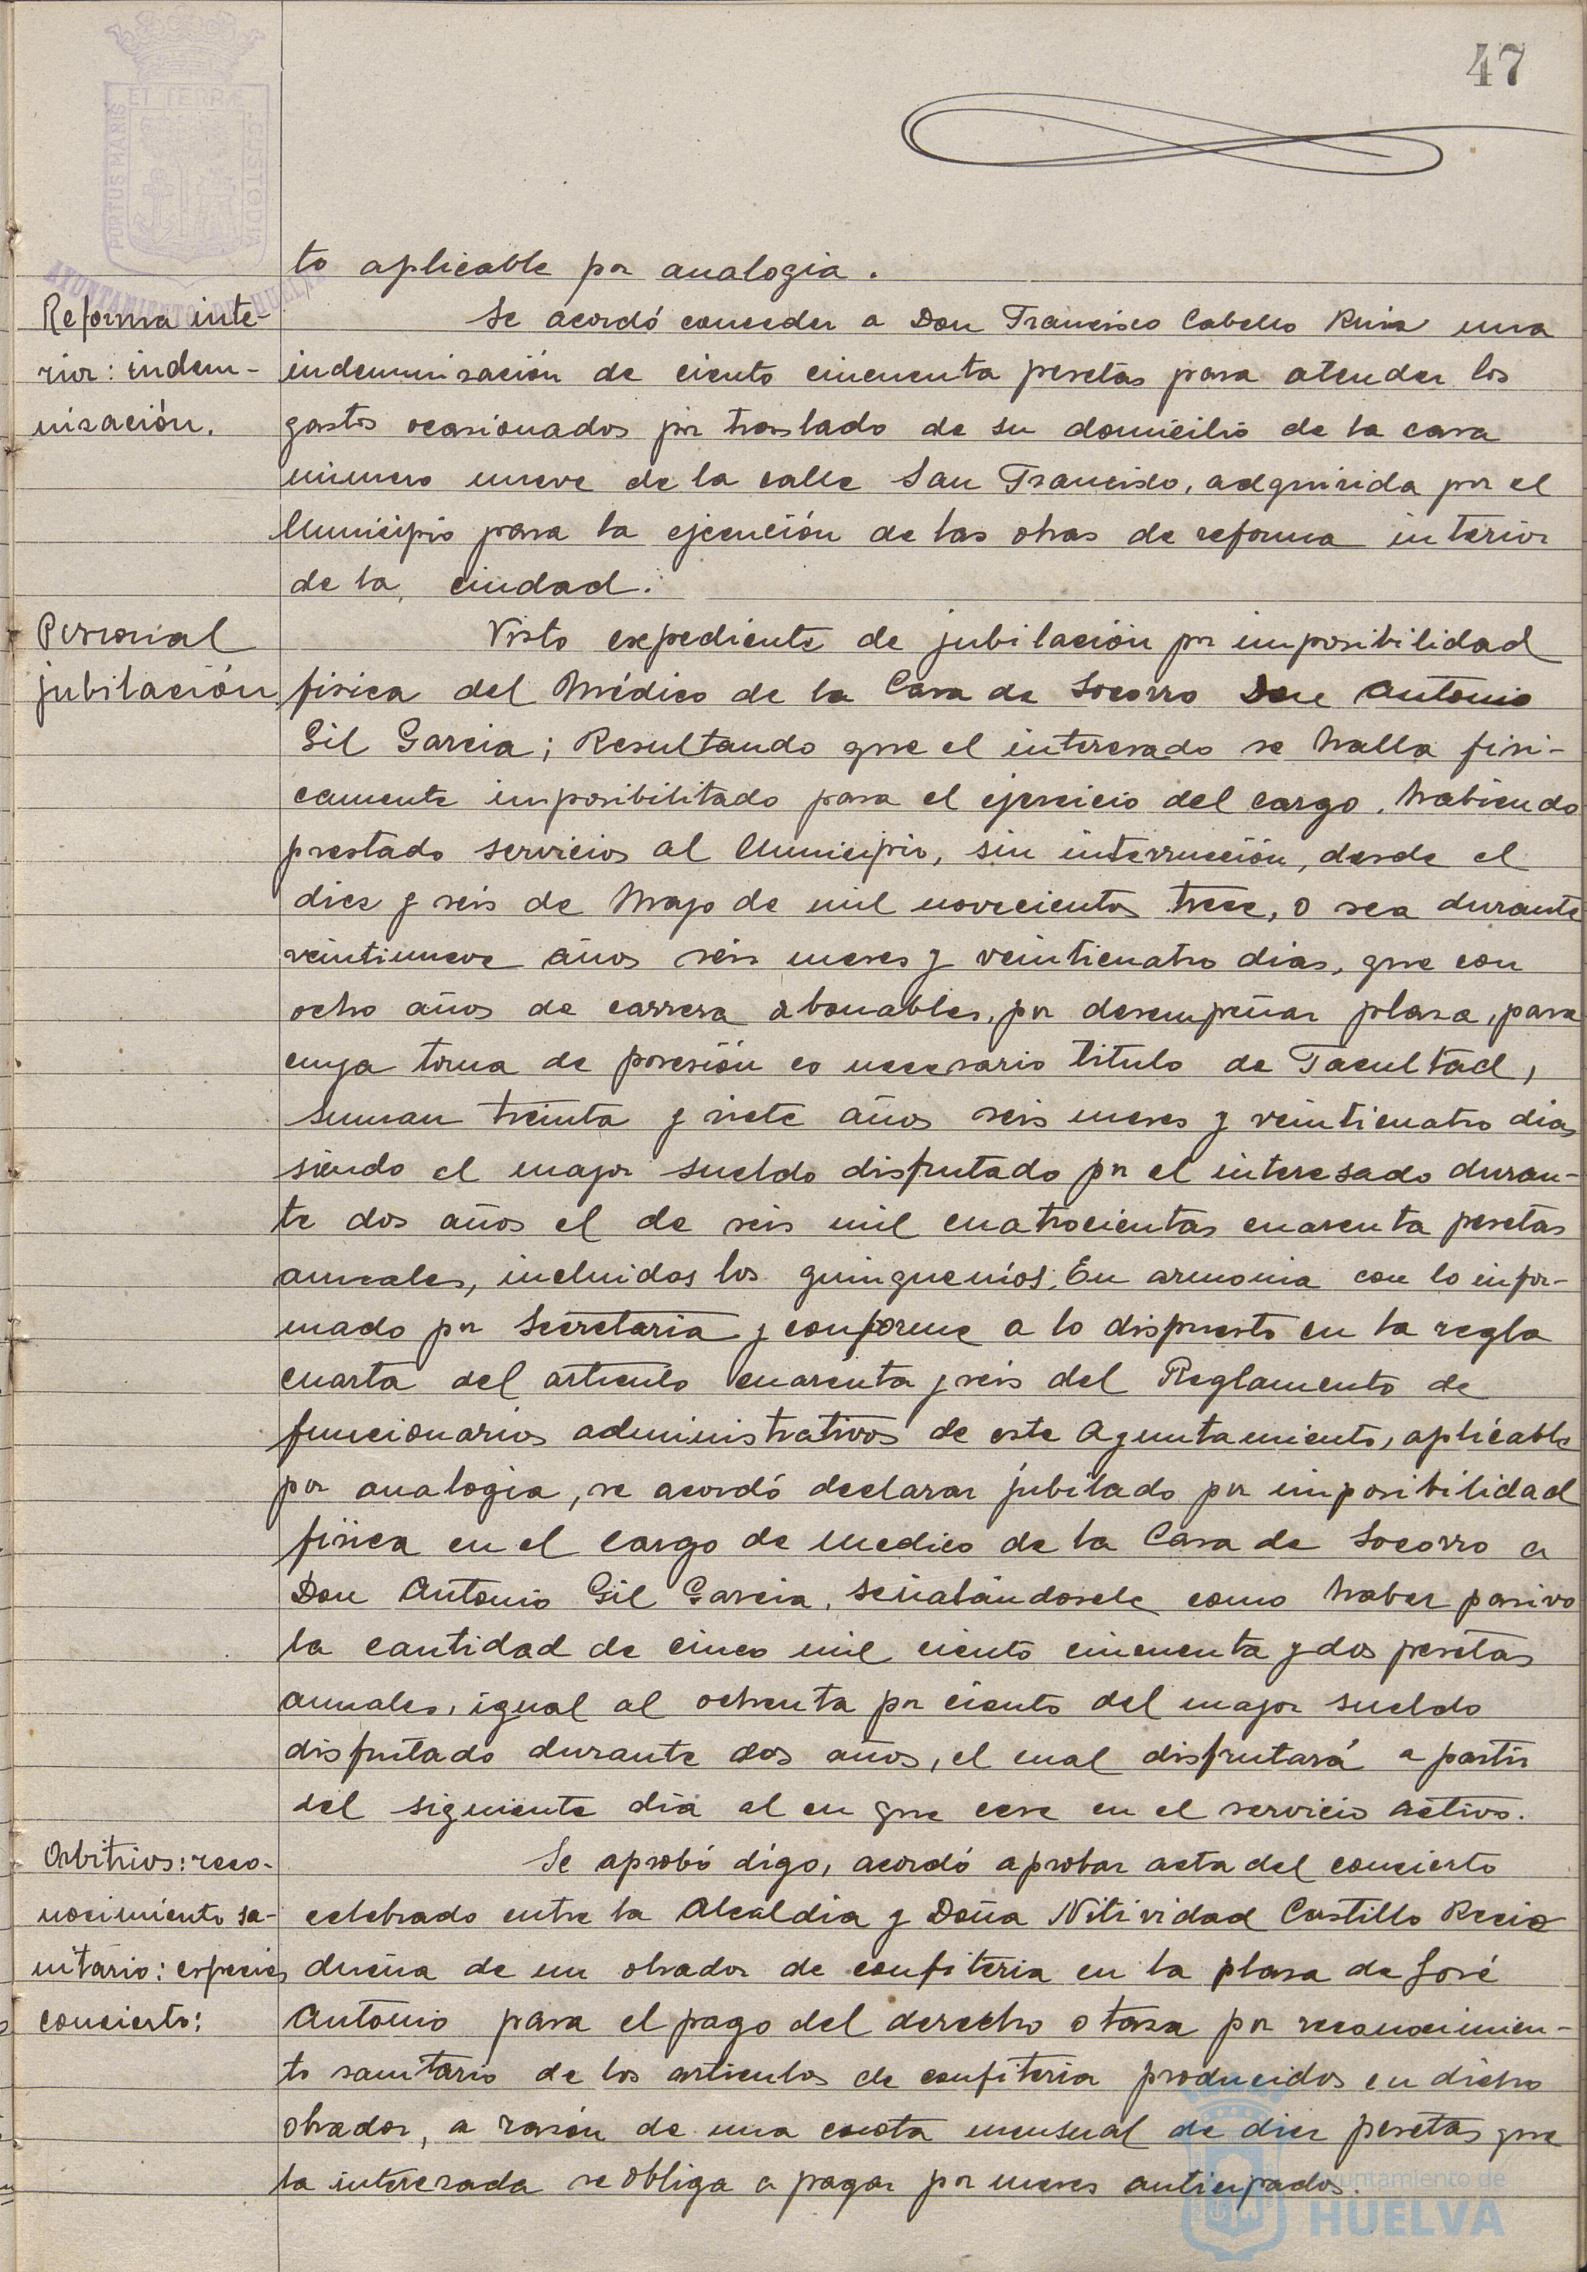 47
ET TERRÆ
PORTUS MARIS
CUSTODIA
AYUNTAMIENTO DE HUELVA
to aplicable por analogia.
Reforma inte-
rior: indem-
nización.
Se acordó conceder a Don Francisco Cabello Ruiz una
indemnización de ciento cincuenta pesetas para atender los
gastos ocasionados por traslado de su domicilio de la casa
número nueve de la calle San Francisco, adquirida por el
Municipio para la ejecución de las obras de reforma interior
de la ciudad.
Personal
jubilación
Visto expediente de jubilación por imposibilidad
fisica del Médico de la Casa de Socorro Don Antonio
Gil Garcia; Resultando que el interesado se halla fisi-
camente imposibilitado para el ejercicio del cargo, habiendo
prestado servicios al Municipio, sin interrucción, desde el
diez y seis de Mayo de mil novecientos trece, o sea durante
veintinueve años seis meses y veinticuatro dias, que con
ocho años de carrera abonables, por desempeñar plaza, para
cuya toma de posesión es necesario titulo de Facultad,
suman treinta y siete años seis meses y veinticuatro dias
siendo el mayor sueldo disfrutado por el interesado duran-
te dos años el de seis mil cuatrocientas cuarenta pesetas
anuales, incluidos los quinquenios. En armonia con lo infor-
mado por Secretaria y conforme a lo dispuesto en la regla
cuarta del articulo cuarenta y seis del Reglamento de
funcionarios administrativos de este Ayuntamiento, aplicable
por analogia, se acordó declarar jubilado por imposibilidad
fisica en el cargo de medico de la Casa de Socorro a
Don Antonio Gil Garcia, señalándosele como haber pasivo
la cantidad de cinco mil ciento cincuenta y dos pesetas
anuales, igual al ochenta por ciento del mayor sueldo
disfrutado durante dos años, el cual disfrutará a partir
del siguiente dia al en que cese en el servicio activo.
Arbitrios: reco-
nocimiento sa-
nitario: especies
concierto:
Se aprobó digo, acordó aprobar acta del concierto
celebrado entre la Alcaldia y Doña Nitividad Castillo Recio
dueña de un obrador de confiteria en la plaza de José
Antonio para el pago del derecho o tasa por reconocimien-
to sanitario de los articulos de confiteria producidos en dicho
obrador, a razón de una cuota mensual de diez pesetas que
la interesada se obliga a pagar por meses anticipados.
Ayuntamiento de
HUELVA